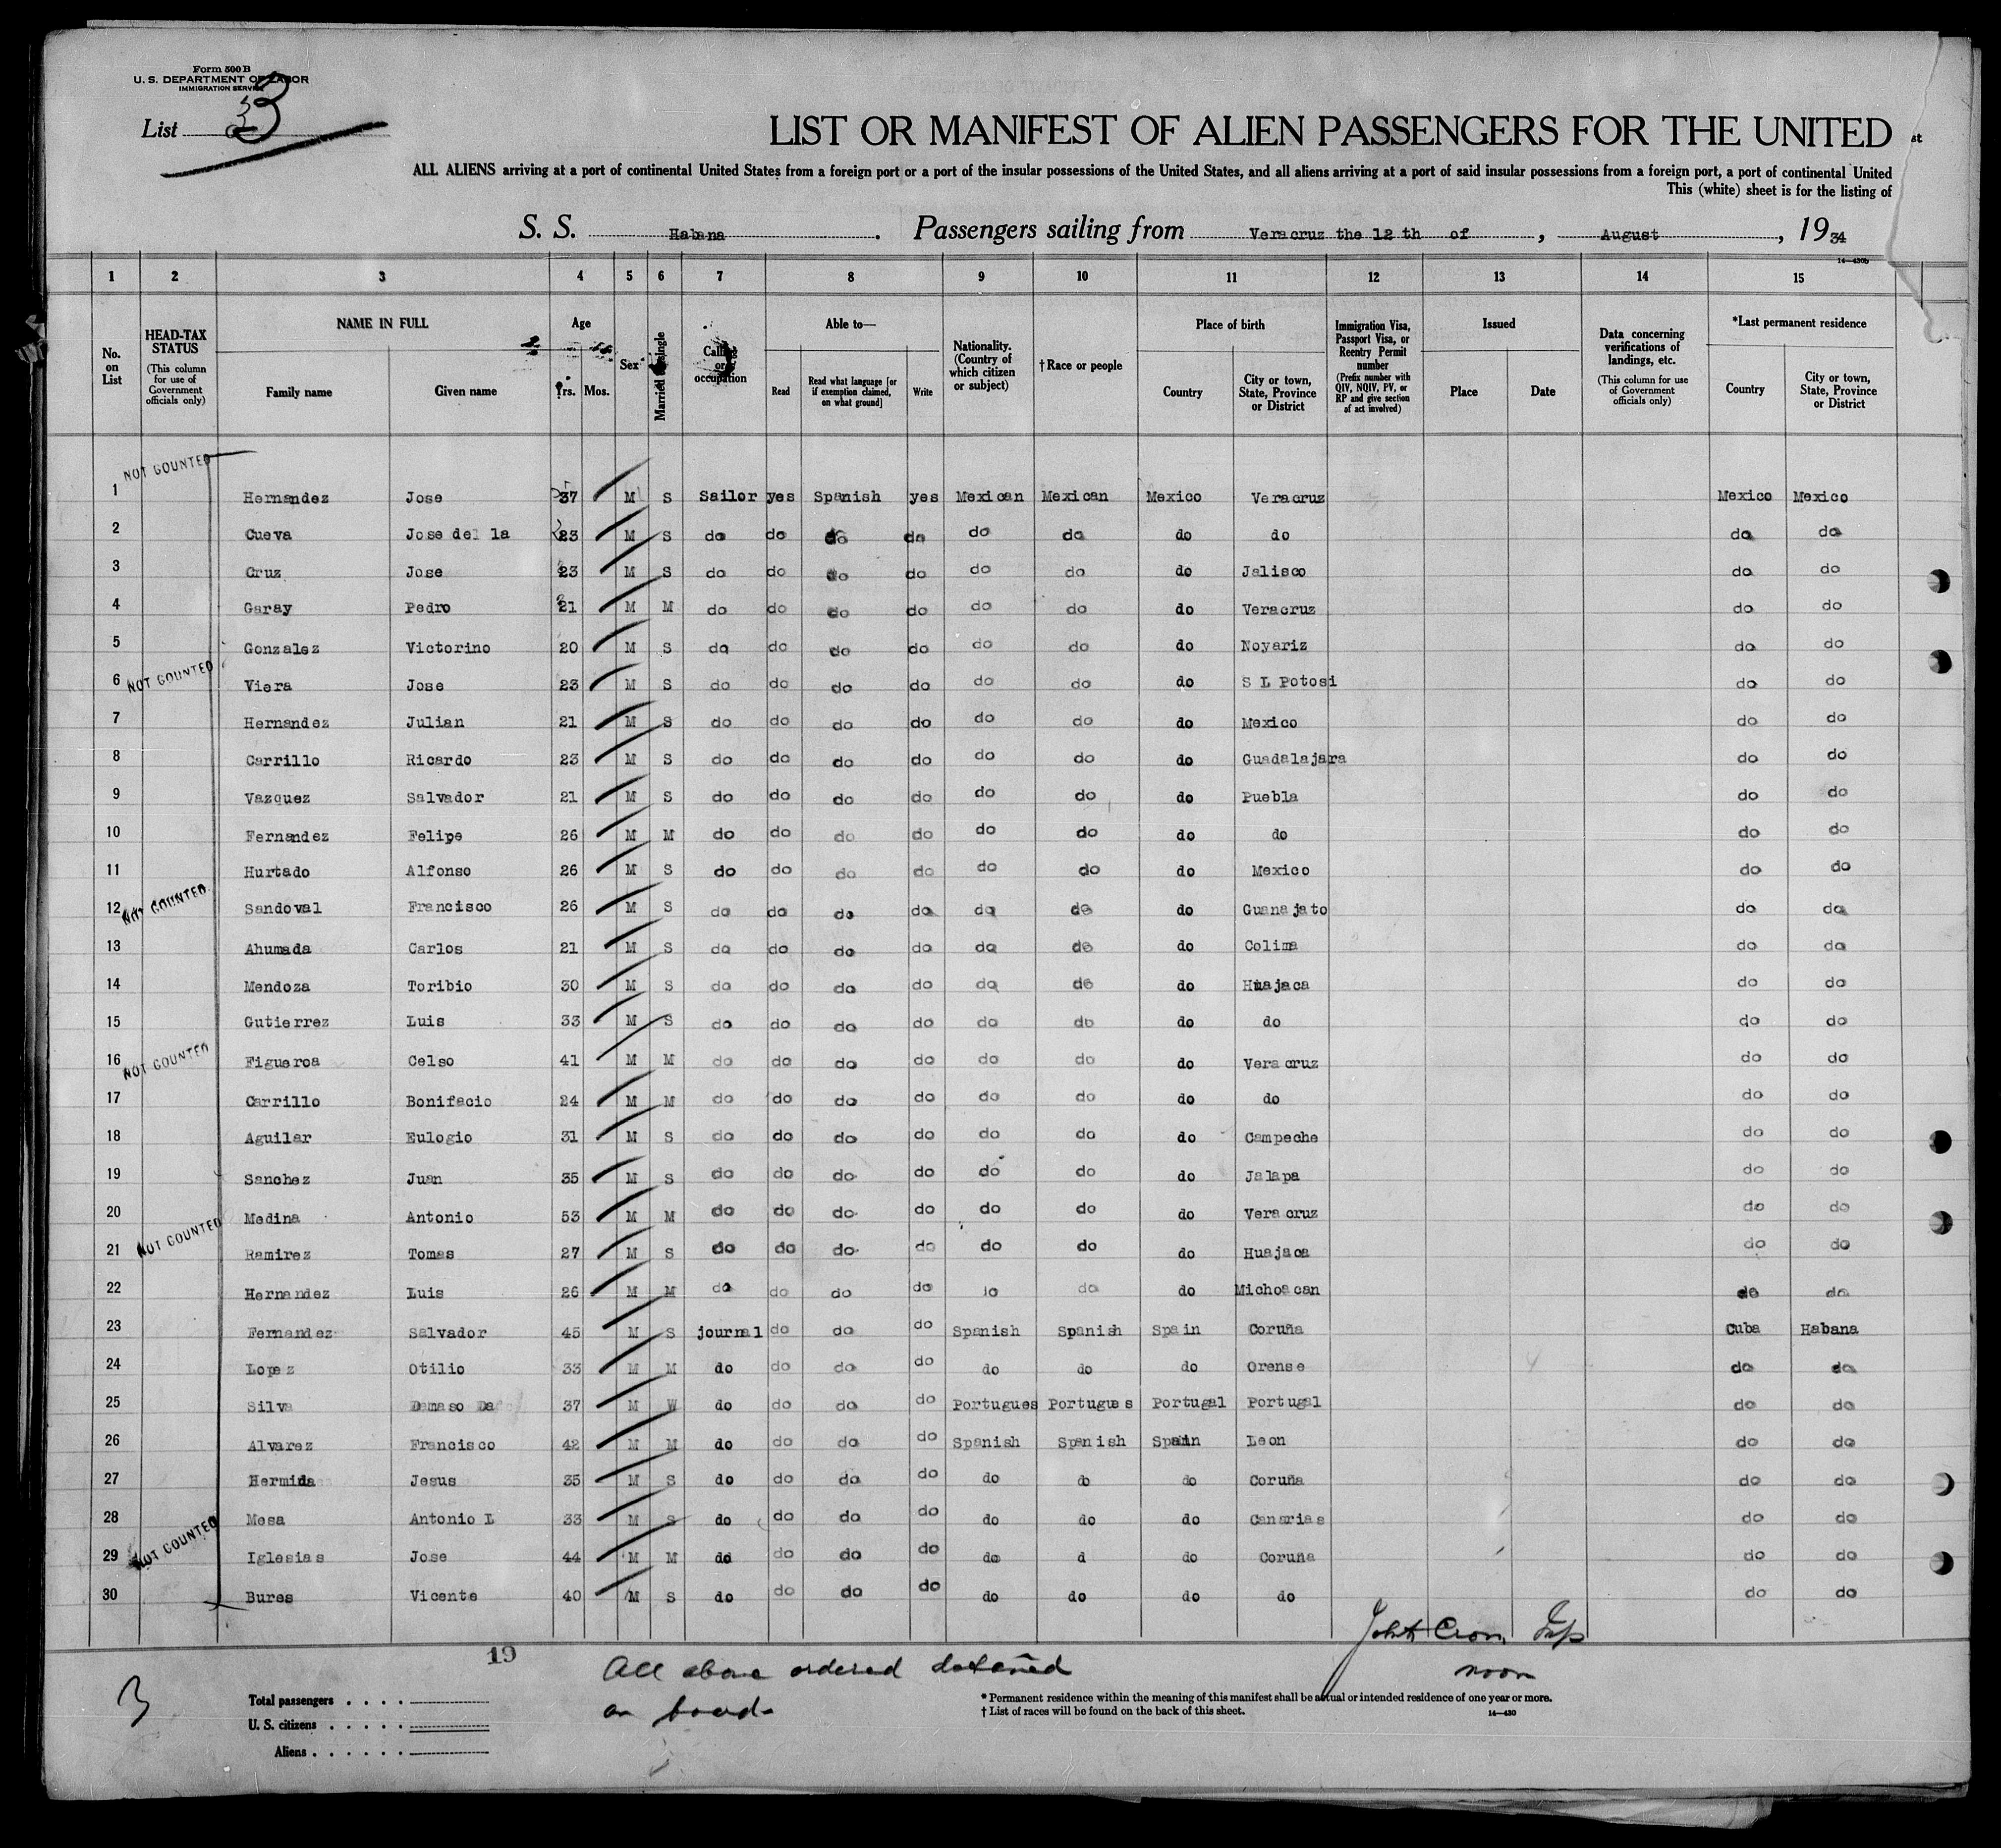 Form 500 B
U. S. DEPARTMENT OF LABOR
IMMIGRATION SERVICE
List 3
LIST OR MANIFEST OF ALIEN PASSENGERS FOR THE UNITED
ALL ALIENS arriving at a port of continental United States from a foreign port or a port of the insular possessions of the United States, and all aliens arriving at a port of said insular possessions from a foreign port, a port of continental United
This (white) sheet is for the listing of
S. S. Habana . Passengers sailing from Veracruz the 12 th of , August , 19 34
14—430b
1 2 3 4 5 6 7 8 9 10 11 12 13 14 15
No. on List
HEAD-TAX STATUS (This column for use of Government officials only)
NAME IN FULL Family name Given name
Age Yrs. Mos.
Sex
Married or single
Calling or occupation
Able to— Read Read what language [or if exemption claimed, on what ground] Write
Nationality. (Country of which citizen or subject)
†Race or people
Place of birth Country City or town, State, Province or District
Immigration Visa, Passport Visa, or Reentry Permit number (Prefix number with QIV, NQIV, PV, or RP and give section of act involved)
Issued Place Date
Data concerning verifications of landings, etc. (This column for use of Government officials only)
*Last permanent residence Country City or town, State, Province or District
NOT COUNTED
1 Hernandez Jose 37 M S Sailor yes Spanish yes Mexican Mexican Mexico Veracruz Mexico Mexico
2 Cueva Jose del la 23 M S do do do do do do do do do do
3 Cruz Jose 23 M S do do do do do do do Jalisco do do
4 Garay Pedro 21 M M do do do do do do do Veracruz do do
5 Gonzalez Victorino 20 M S do do do do do do do Noyariz do do
NOT COUNTED
6 Viera Jose 23 M S do do do do do do do S L Potosi do do
7 Hernandez Julian 21 M S do do do do do do do Mexico do do
8 Carrillo Ricardo 23 M S do do do do do do do Guadalajara do do
9 Vazquez Salvador 21 M S do do do do do do do Puebla do do
10 Fernandez Felipe 26 M M do do do do do do do do do do
11 Hurtado Alfonso 26 M S do do do do do do do Mexico do do
NOT COUNTED
12 Sandoval Francisco 26 M S do do do do do do do Guanajato do do
13 Ahumada Carlos 21 M S do do do do do do do Colima do do
14 Mendoza Toribio 30 M S do do do do do do do Huajaca do do
15 Gutierrez Luis 33 M S do do do do do do do do do do
NOT COUNTED
16 Figueroa Celso 41 M M do do do do do do do Veracruz do do
17 Carrillo Bonifacio 24 M M do do do do do do do do do do
18 Aguilar Eulogio 31 M S do do do do do do do Campeche do do
19 Sanchez Juan 35 M S do do do do do do do Jalapa do do
20 Medina Antonio 53 M M do do do do do do do Veracruz do do
NOT COUNTED
21 Ramirez Tomas 27 M S do do do do do do do Huajaca do do
22 Hernandez Luis 26 M M do do do do do do do Michoacan do do
23 Fernandez Salvador 45 M S journal do do do Spanish Spanish Spain Coruña Cuba Habana
24 Lopez Otilio 33 M M do do do do do do do Orense do do
25 Silva Damaso Da 37 M W do do do do Portugues Portugues Portugal Portugal do do
26 Alvarez Francisco 42 M M do do do do Spanish Spanish Spain Leon do do
27 Hermida Jesus 35 M S do do do do do do do Coruña do do
28 Mesa Antonio L 33 M S do do do do do do do Canarias do do
NOT COUNTED
29 Iglesias Jose 44 M M do do do do do d do Coruña do do
30 Bures Vicente 40 M S do do do do do do do do do do
Insp
19
All above ordered detained
on board
noon
3
Total passengers
U. S. citizens
Aliens
* Permanent residence within the meaning of this manifest shall be actual or intended residence of one year or more.
† List of races will be found on the back of this sheet.
14—430